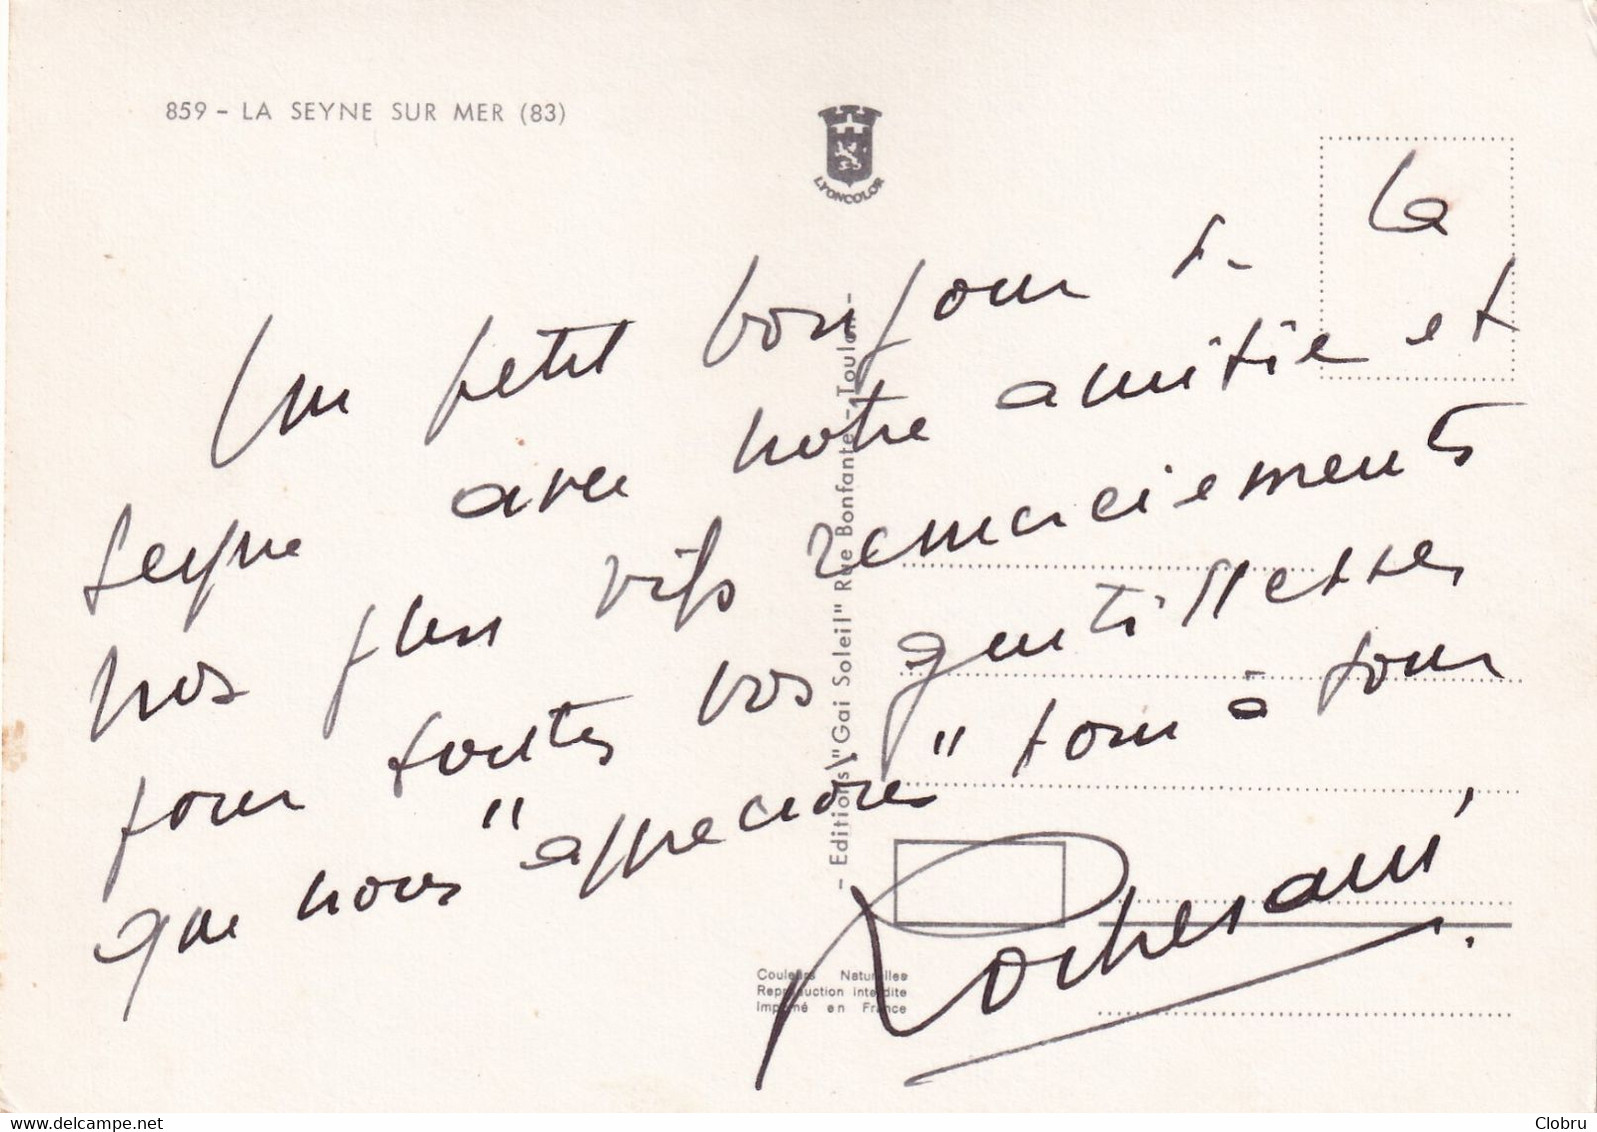 859 - LA SEYNE SUR MER (83)
LYONCOLOR
Un petit bonjour de La
Seyne avec notre amitie et
nos plus vifs remerciements
pour toutes vos gentillesses
que nous "apprecions" tour à tour
- Editions "Gai Soleil" Rue Bonfante - Toulon -
Couleurs Naturelles
Reproduction interdite
Imprimé en France
delcampe.net
Clobru